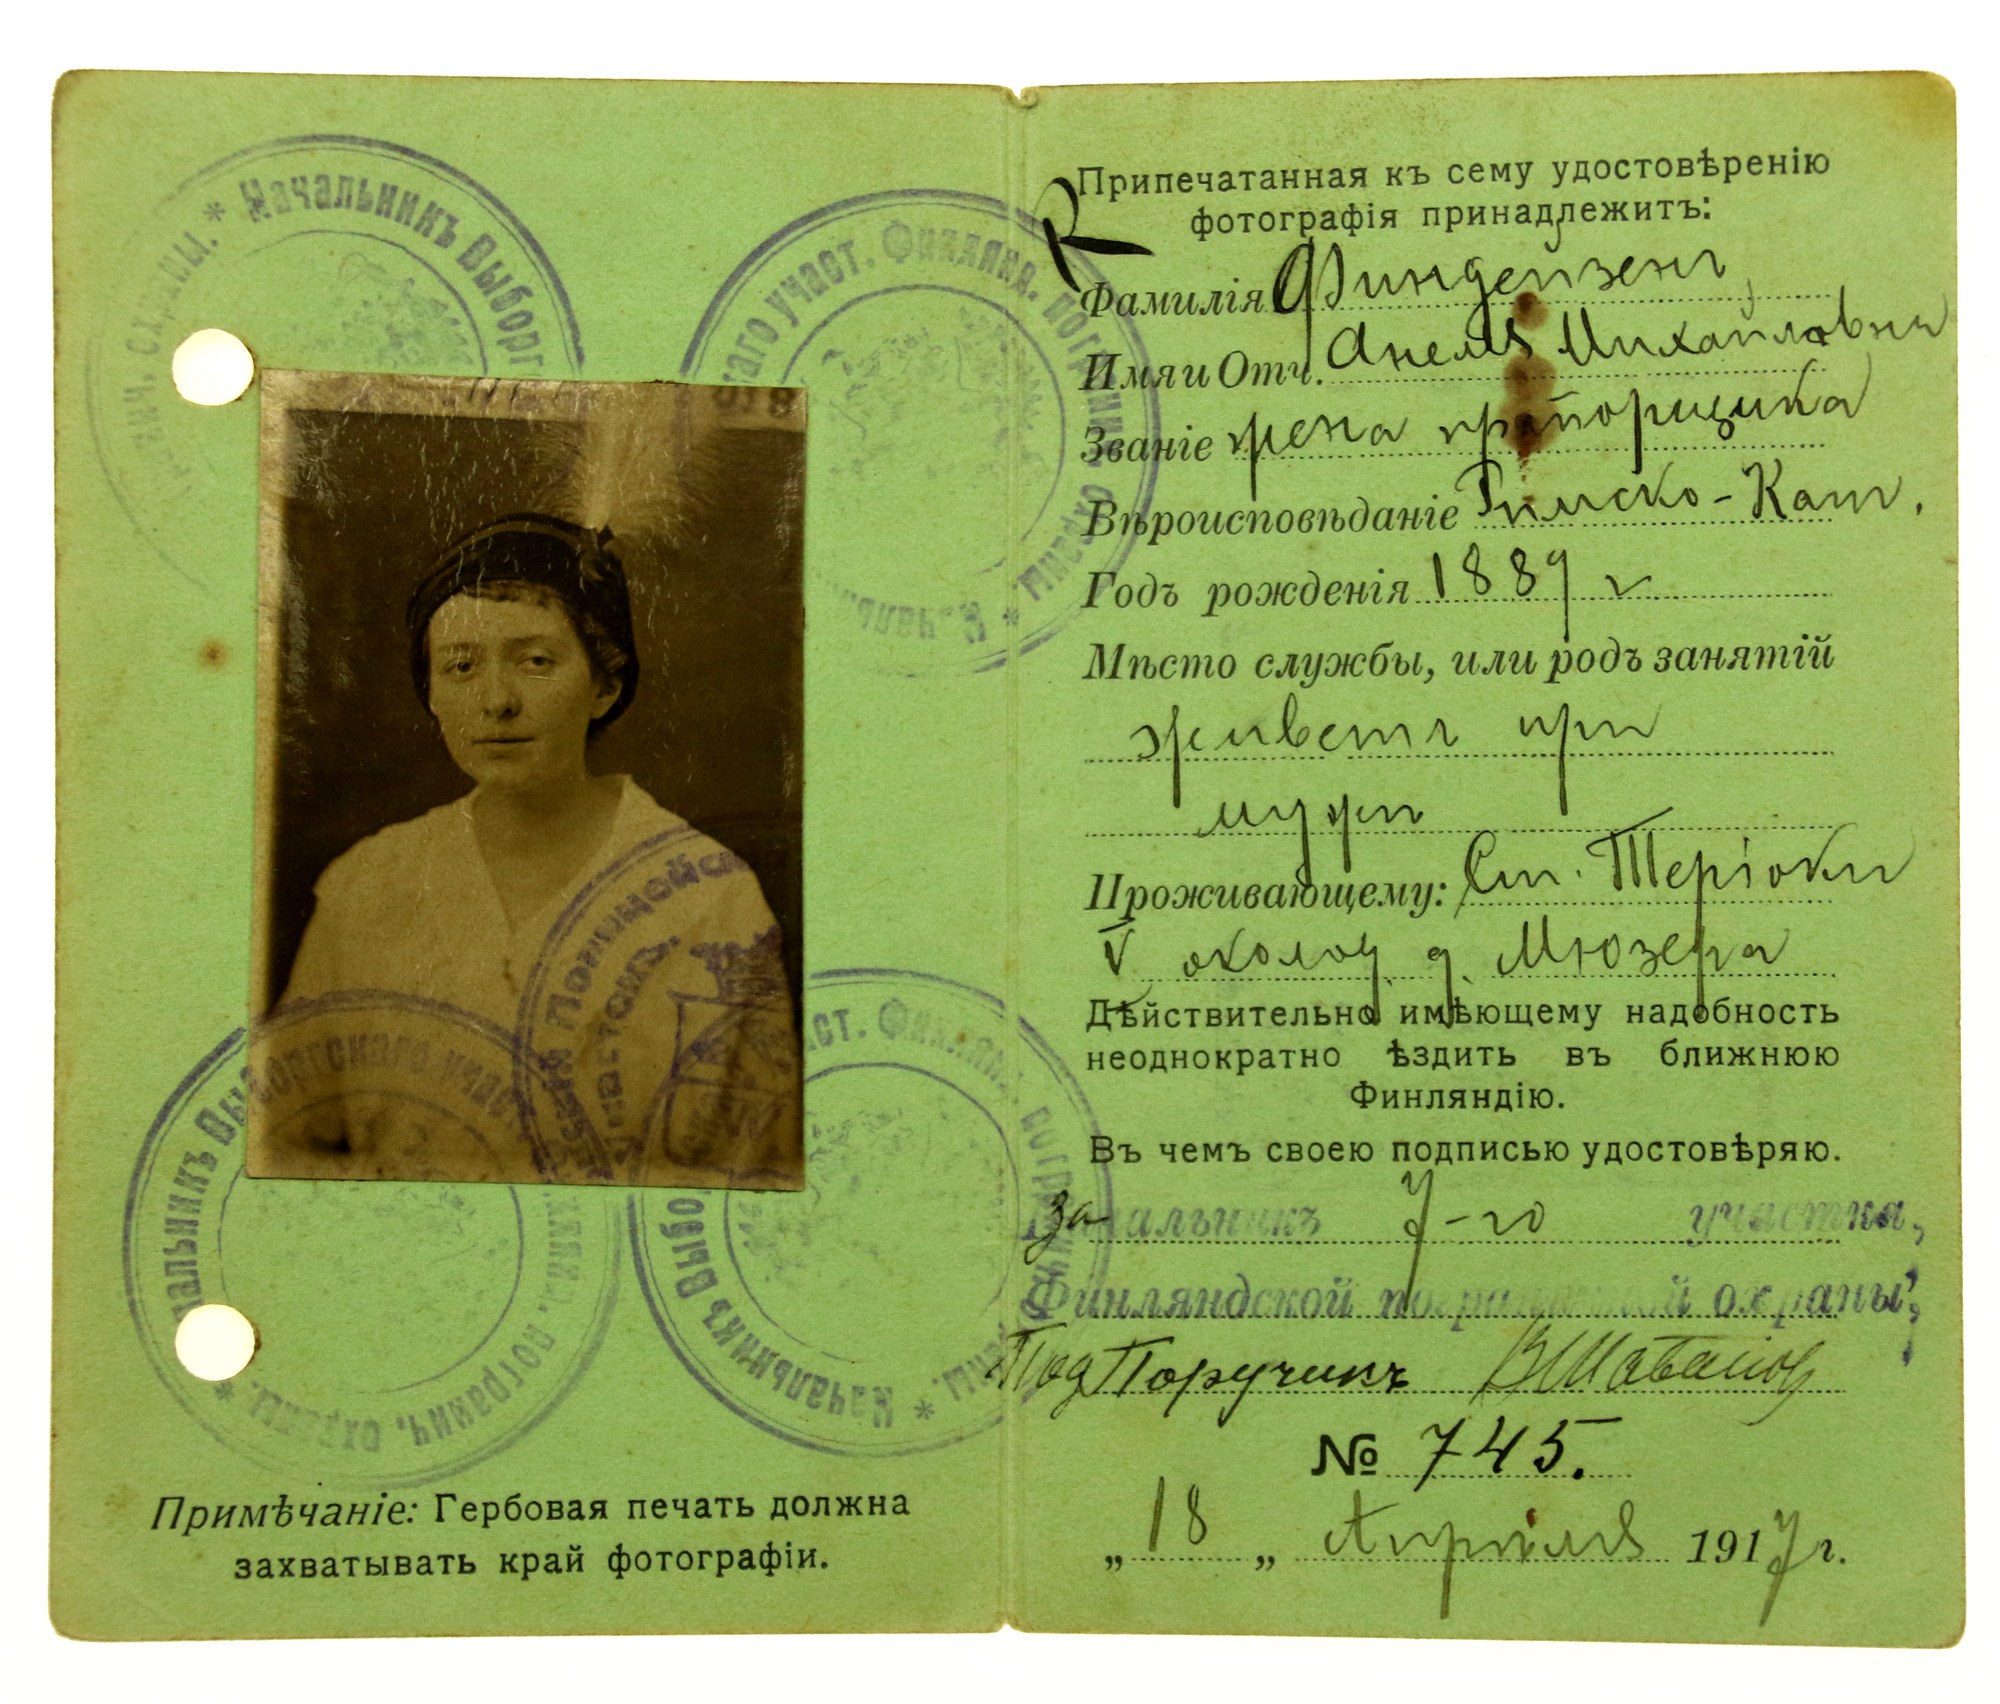 * Начальникъ Выборг
погранич. охраны.
скаго участ. Финлянд. погранич. охраны *
Начальникъ Выборгскаго участ. Финлянд. погранич. охраны. *
Начальникъ Выборгскаго участ. Финлянд. погранич. охраны. *
Примѣчаніе: Гербовая печать должна
захватывать край фотографіи.
К
Припечатанная къ сему удостовѣренію
фотографія принадлежитъ:
Фамилія Финдейзенъ
Имя и Отч. Анеля Михайловна
Званіе жена прапорщика
Вѣроисповѣданіе Римско-Кат.
Годъ рожденія 1889 г.
Мѣсто службы, или родъ занятій
живетъ при
мужѣ
Проживающему: Ст. Теріоки
V околод. д. Мюзера
Дѣйствительно имѣющему надобность
неоднократно ѣздить въ ближнюю
Финляндію.
Въ чемъ своею подписью удостовѣряю.
за Начальникъ 7-го участка,
Финляндской пограничной охраны,
ПодПоручикъ
№ 745.
„ 18 „ Апрѣля 1917 г.